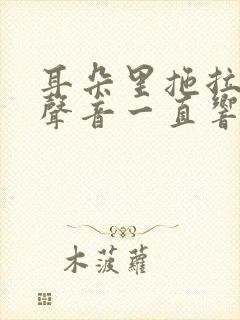 耳朵里拖拉
聲音一直響
木菠蘿